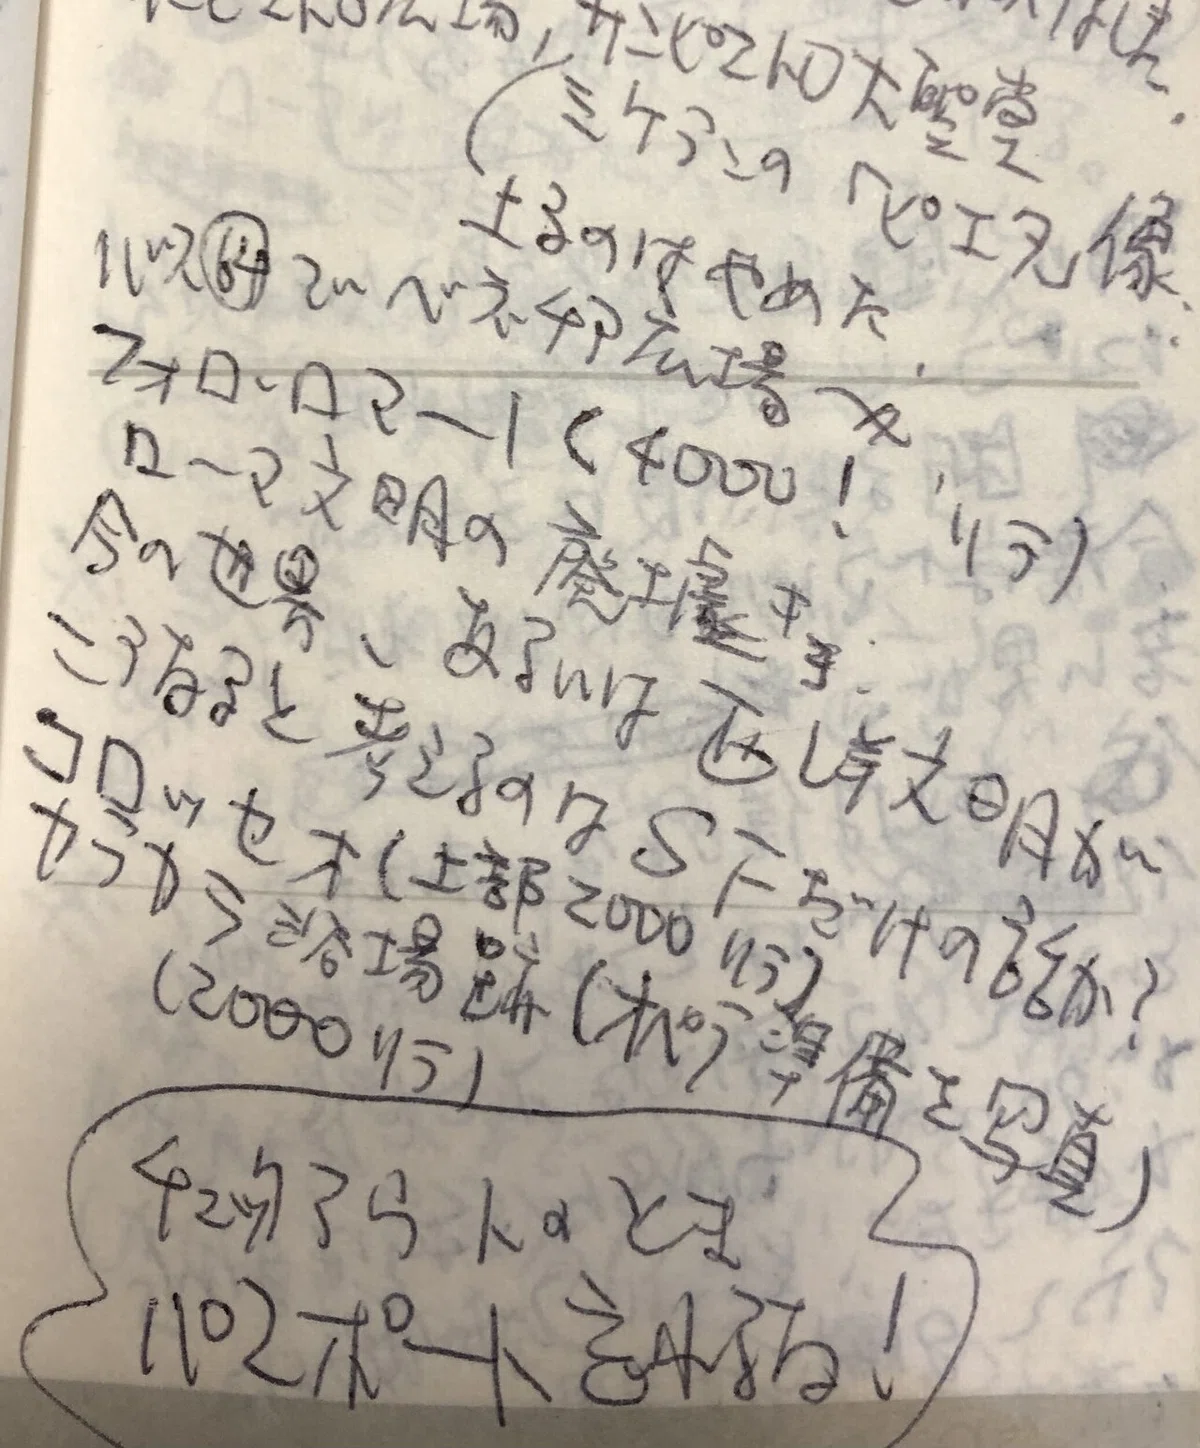 広場,サンピエトロ大聖堂
ミケランのピエタ像.
土るのはやめた.
バス64でベネチア広場へ.
フォロ・ロマーノ(4000!リラ)
ローマ文明の廃墟
今の世界、あるいは西欧文明が
こうなると考えるのはSFだけの話か?
コロッセオ(上部2000リラ)
カラカラ浴場跡(オペラ準備を写真)
(2000リラ)
チェックアウトのとき
パスポート忘れるな!